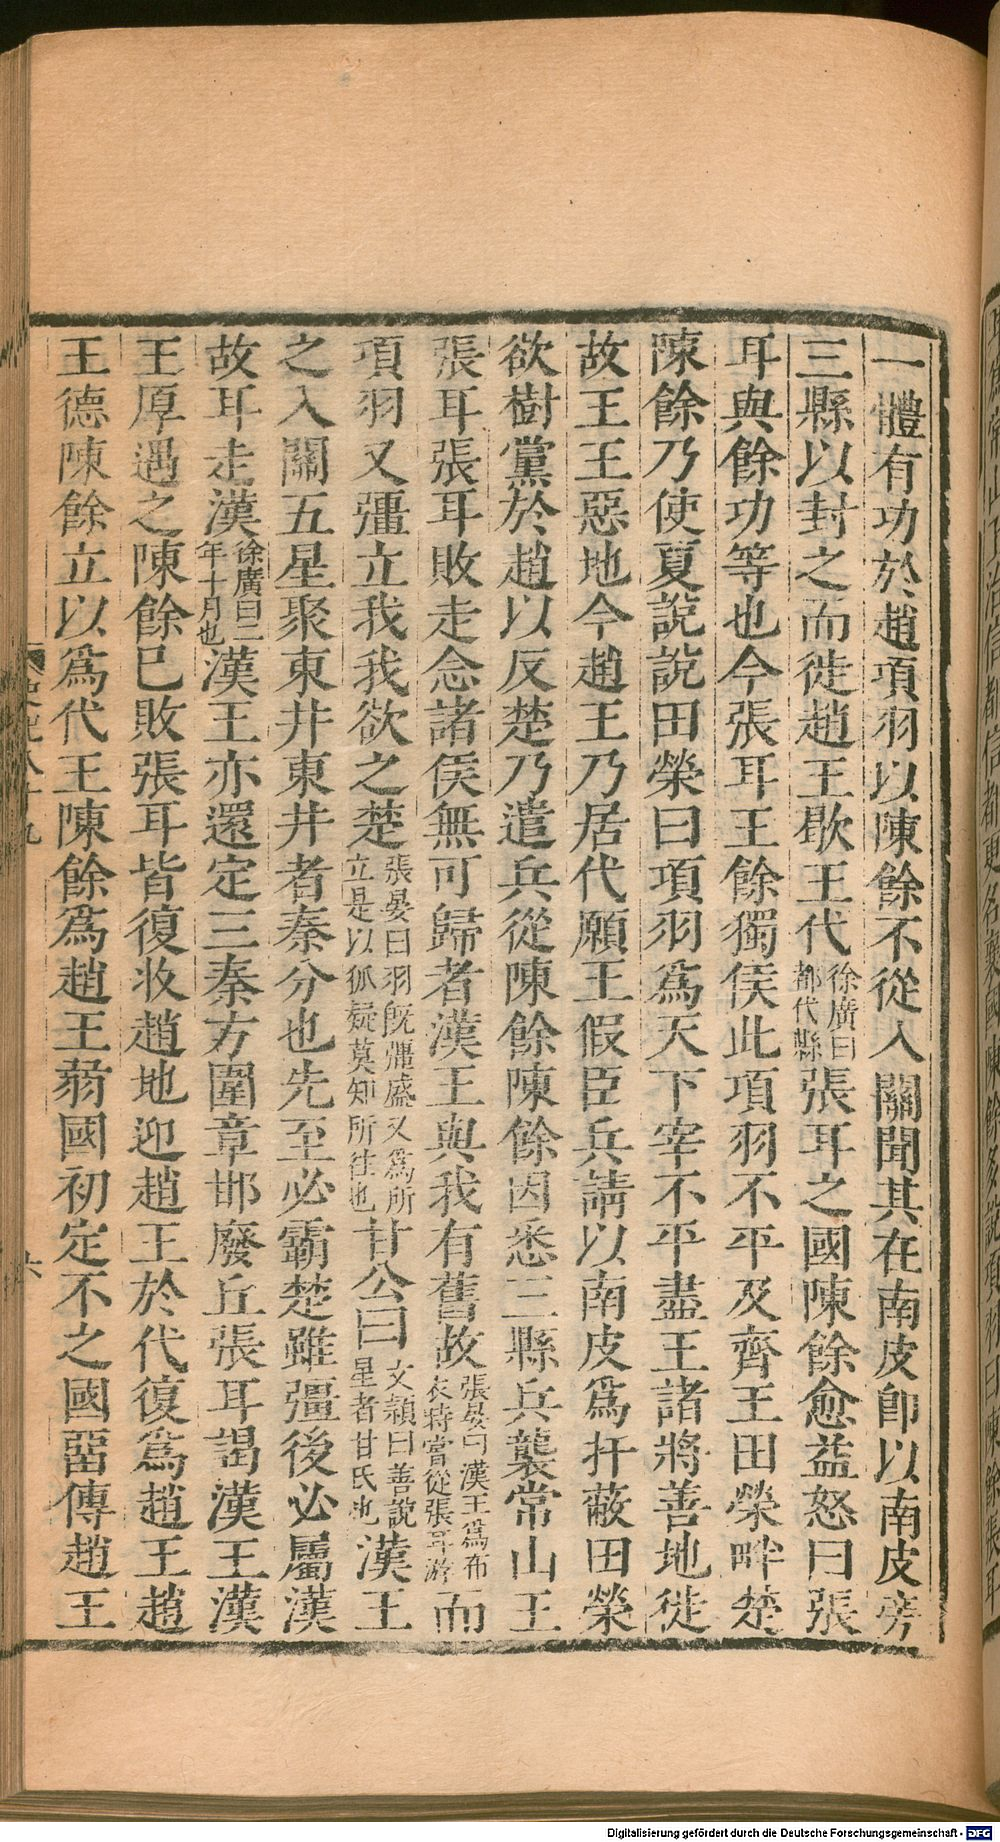 一體有功於趙項羽以陳餘不從入關聞其在南皮卽以南皮旁
三縣以封之而徙趙王歇王代徐廣曰都代縣張耳之國陳餘愈益怒曰張
耳與餘功等也今張耳王餘獨侯此項羽不平及齊王田榮畔楚
陳餘乃使夏說說田榮曰項羽爲天下宰不平盡王諸將善地徙
故王王惡地今趙王乃居代願王假臣兵請以南皮爲扞蔽田榮
欲樹黨於趙以反楚乃遣兵從陳餘陳餘因悉三縣兵襲常山王
張耳張耳敗走念諸侯無可歸者漢王與我有舊故張晏曰漢王爲布衣時嘗從張耳游而
項羽又彊立我我欲之楚張晏曰羽旣彊盛又爲所立是以狐疑莫知所往也甘公曰文穎曰善說星者甘氏也漢王
之入關五星聚東井東井者秦分也先至必霸楚雖彊後必屬漢
故耳走漢徐廣曰二年十月也漢王亦還定三秦方圍章邯廢丘張耳謁漢王漢
王厚遇之陳餘已敗張耳皆復收趙地迎趙王於代復爲趙王趙
王德陳餘立以爲代王陳餘爲趙王弱國初定不之國畱傅趙王
Digitalisierung gefördert durch die Deutsche Forschungsgemeinschaft - DFG